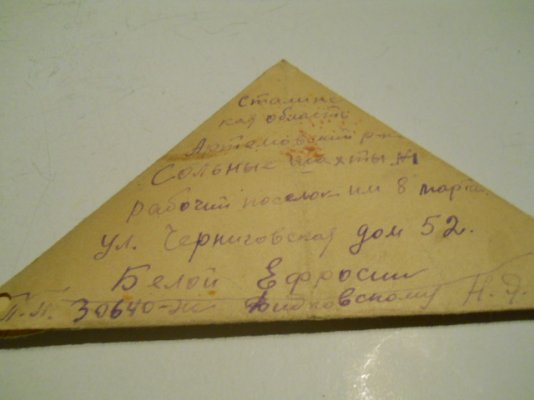 Сталинс
кая область
Артемовский р-н
Сольные шахты
рабочий поселок им 8 марта
ул. Черниговская дом 52.
Белой Ефросии
П.П. 30640-Ж Н. Я.